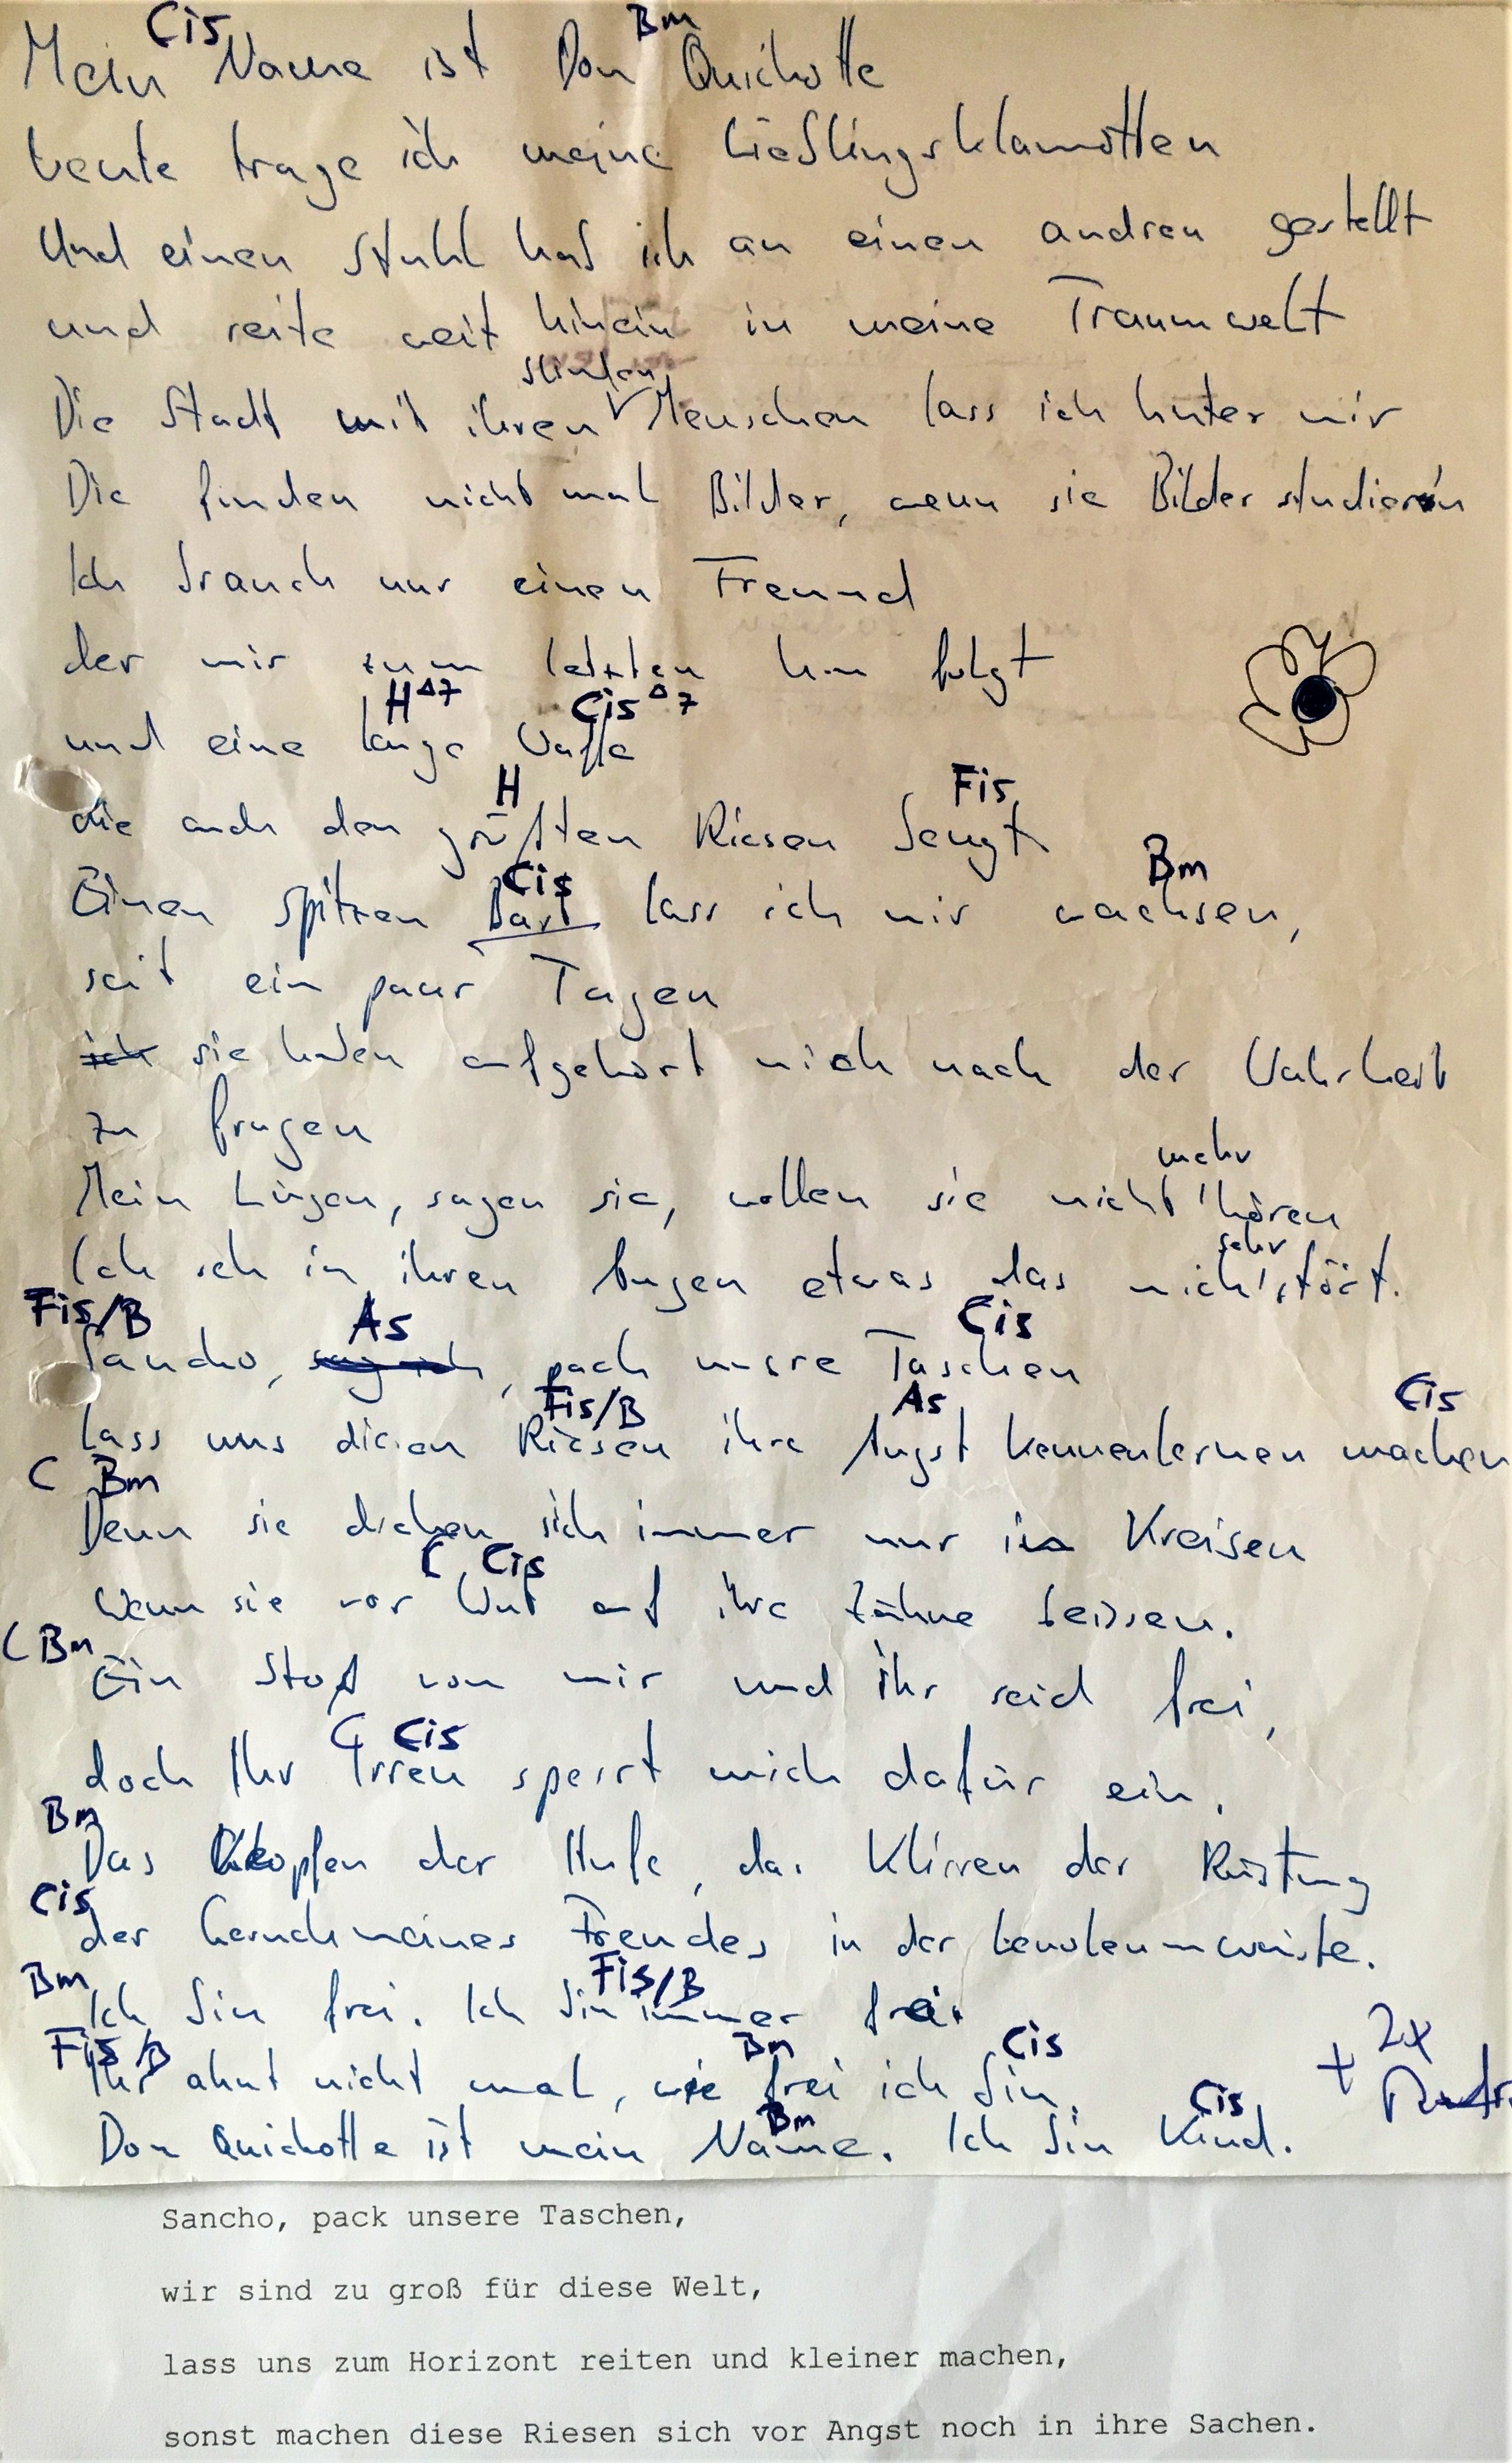 Cis Bm
Mein Name ist Don Quichotte
heute trage ich meine Lieblingsklamotten
Und einen Stuhl hab ich an einen andren gestellt
und reite weit hinein in meine Traumwelt
blinden
Die Stadt mit ihren Menschen lass ich hinter mir
Die finden nicht mal Bilder, wenn sie Bilder studieren
Ich brauch nur einen Freund
der mir zum letzten hin folgt
H∆7 Cis∆7
und eine lange Waffe
H Fis
die auch den größten Riesen beugt
Cis Bm
Einen spitzen Bart lass ich mir wachsen,
seit ein paar Tagen
ich sie haben aufgehört mich nach der Wahrheit
zu fragen
mehr
Mein Lügen, sagen sie, wollen sie nicht hören
sehr
Ich seh in ihren Augen etwas das mich stört.
Fis/B As Cis
Sancho, sag ich, pack unsre Taschen
Fis/B As Cis
lass uns diesen Riesen ihre Angst kennenlernen machen
C Bm
Denn sie drehen sich immer nur in Kreisen
C Cis
Wenn sie vor Wut auf ihre Zähne beissen.
C Bm
Ein Stoß von mir und ihr seid frei,
C Cis
doch Ihr Irren sperrt mich dafür ein.
Bm
Das Klopfen der Hufe, das Klirren der Rüstung
Cis
der Geruch meines Freundes in der
Bm Fis/B
Ich bin frei. Ich bin immer frei.
Fis/B Bm Cis
Ihr ahnt nicht mal, wie frei ich bin.
+ 2x
Bm Cis
Don Quichotte ist mein Name. Ich bin Kind.
Sancho, pack unsere Taschen,
wir sind zu groß für diese Welt,
lass uns zum Horizont reiten und kleiner machen,
sonst machen diese Riesen sich vor Angst noch in ihre Sachen.